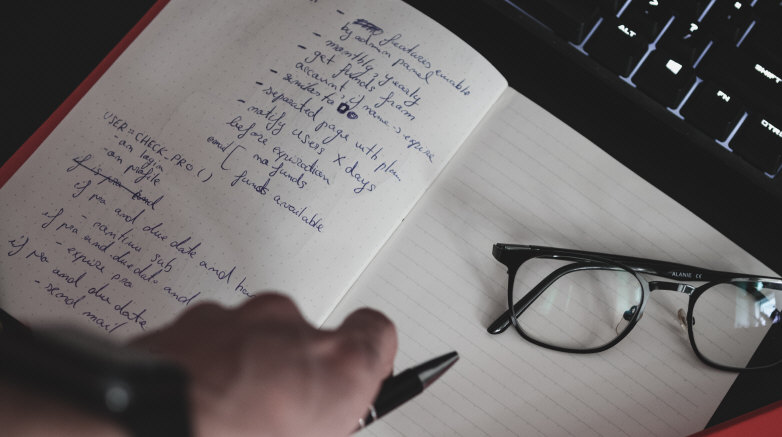 - features enable
by admin panel
- monthly, yearly
- get funds from
account, if
- similar to DO
- separated page with
- notify users X days
before expiration
email [ no funds
funds available
USER = CHECK_PRO()
- on login
- on profile
if is pro
if pro and due date and
- continue sub
if pro and due date and
- expire pro
if pro and due date
- send mail
ALANIE CE
ALT
FN
SHIFT
CTRL